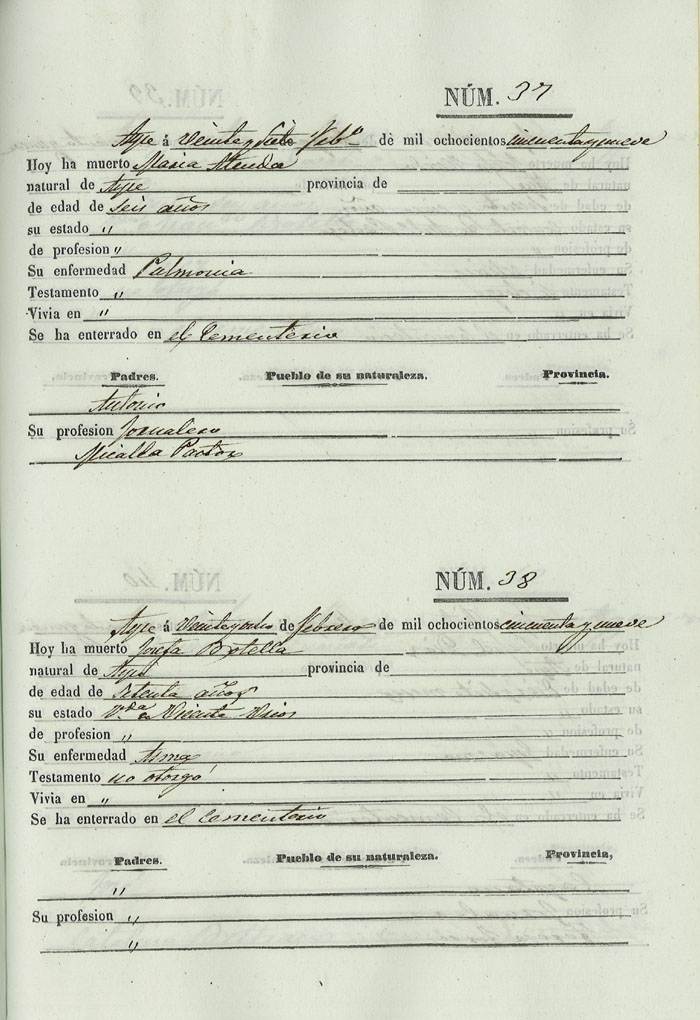 NÚM. 37
Aspe á veinte y siete Feb.º de mil ochocientos cincuenta y nueve
Hoy ha muerto Maria Alenda
natural de Aspe provincia de
de edad de seis años
su estado "
de profesion "
Su enfermedad Pulmonia
Testamento "
Vivia en "
Se ha enterrado en el Cementerio
Padres. Pueblo de su naturaleza. Provincia.
Antonio
Su profesion Jornalero
Micaela Pastor
NÚM. 38
Aspe á veinte y ocho de Febrero de mil ochocientos cincuenta y nueve
Hoy ha muerto Josefa Botella
natural de Aspe provincia de
de edad de setenta años
su estado V.da de Vicente
de profesion "
Su enfermedad Asma
Testamento no otorgó
Vivia en "
Se ha enterrado en el Cementerio
Padres. Pueblo de su naturaleza. Provincia,
"
Su profesion "
"